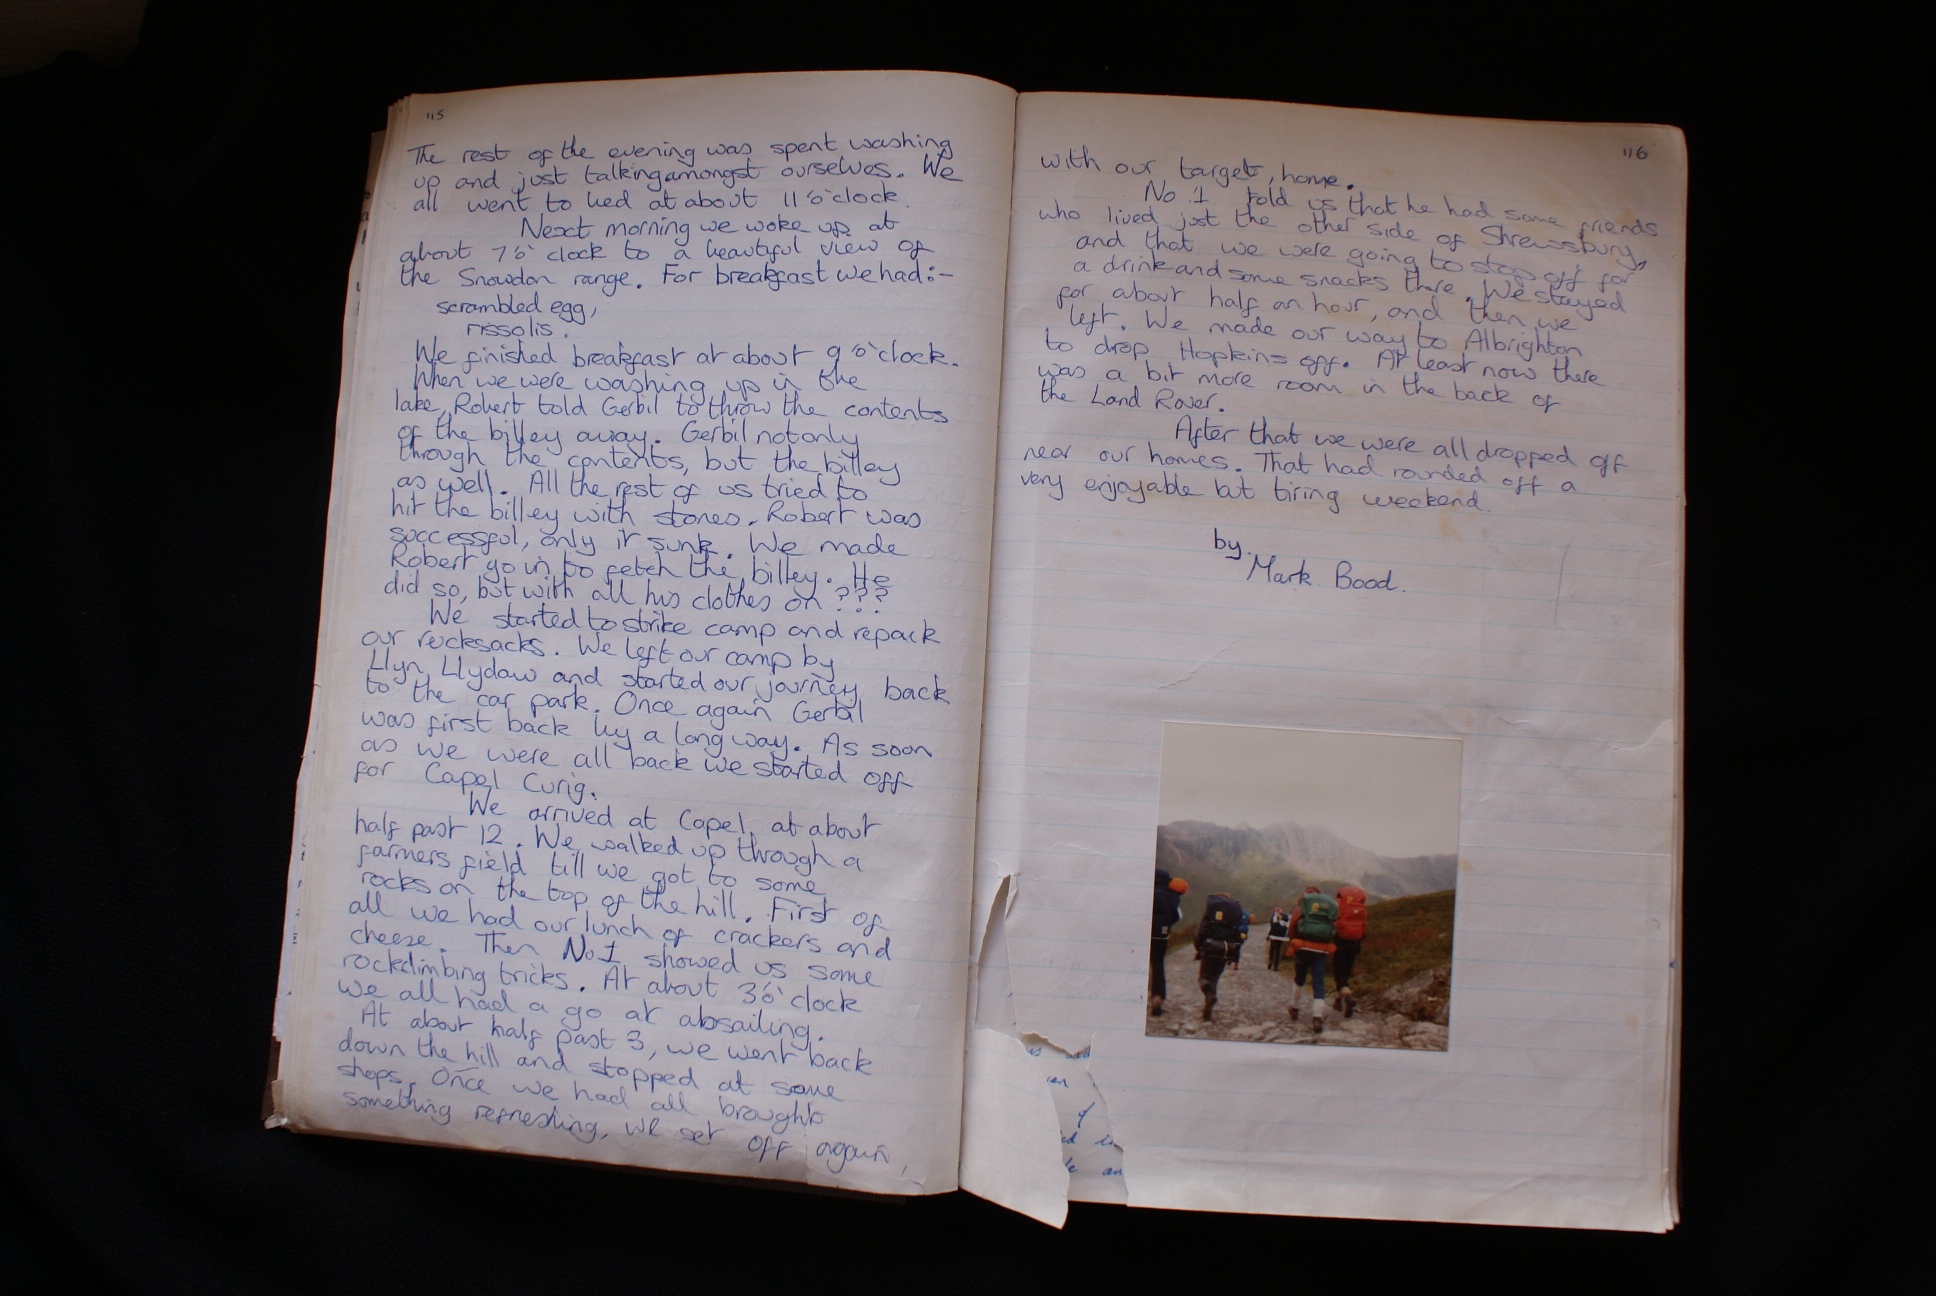 115
The rest of the evening was spent washing
up and just talking amongst ourselves. We
all went to bed at about 11 o'clock.
Next morning we woke up at
about 7 o'clock to a beautiful view of
the Snowdon range. For breakfast we had:-
scrambled egg,
rissolis.
We finished breakfast at about 9 o'clock.
When we were washing up in the
lake, Robert told Gerbil to throw the contents
of the billey away. Gerbil not only
through the contents, but the billey
as well. All the rest of us tried to
hit the billey with stones. Robert was
successful, only it sunk. We made
Robert go in to fetch the billey. He
did so, but with all his clothes on ???
We started to strike camp and repack
our rucksacks. We left our camp by
Llyn Llydaw and started our journey back
to the car park. Once again Gerbil
was first back by a long way. As soon
as we were all back we started off
for Capel Curig.
We arrived at Capel, at about
half past 12. We walked up through a
farmers field till we got to some
rocks on the top of the hill. First of
all we had our lunch of crackers and
cheese. Then No1 showed us some
rockclimbing tricks. At about 3 o'clock
we all had a go at absailing.
At about half past 3, we went back
down the hill and stopped at some
shops. Once we had all brought
something refreshing, we set off again,
116
with our target, home.
No 1 told us that he had some friends
who lived just the other side of Shrewsbury,
and that we were going to stop off for
a drink and some snacks there. We stayed
for about half an hour, and then we
left. We made our way to Albrighton
to drop Hopkins off. At least now there
was a bit more room in the back of
the Land Rover.
After that we were all dropped off
near our homes. That had rounded off a
very enjoyable but tiring weekend.
by.
Mark Bood.